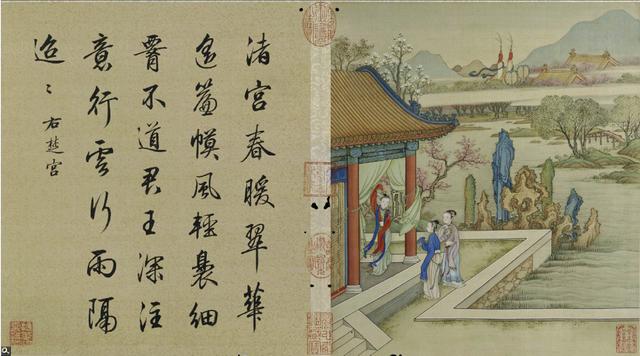 渚宮春暖翠華
遥簾幙風輕裊細
腰不道君王深注
意行雲行雨隔
迢〻右楚宮